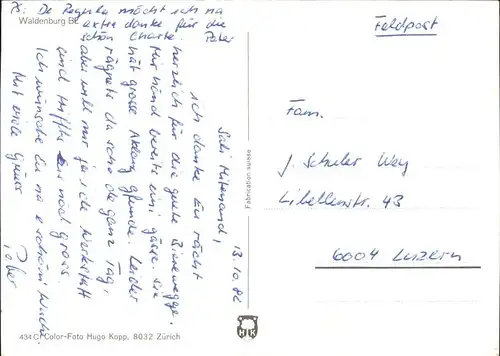 PS: De Regula möcht ich na
extra danke für die
schön Charte Peter
Waldenburg BL
13.10.82
Sali Mitenand,
ich danke Eu rächt
herzlich für die guete Birewegge.
Mir händ bereits eini gässe. Sie
hät grosse Aklang gfunde. Leider
rägnets da scho de ganz Tag,
aber mir
und hoffts Eu mal gross.
Ich wünsche Eu na e schöni Wuche.
Mit viele Grüess
Peter
434 C Color-Foto Hugo Kopp, 8032 Zürich
Fabrication suisse
HK
Feldpost
Fam.
J. Schuler Wey
Libellenstr. 43
6004 Luzern